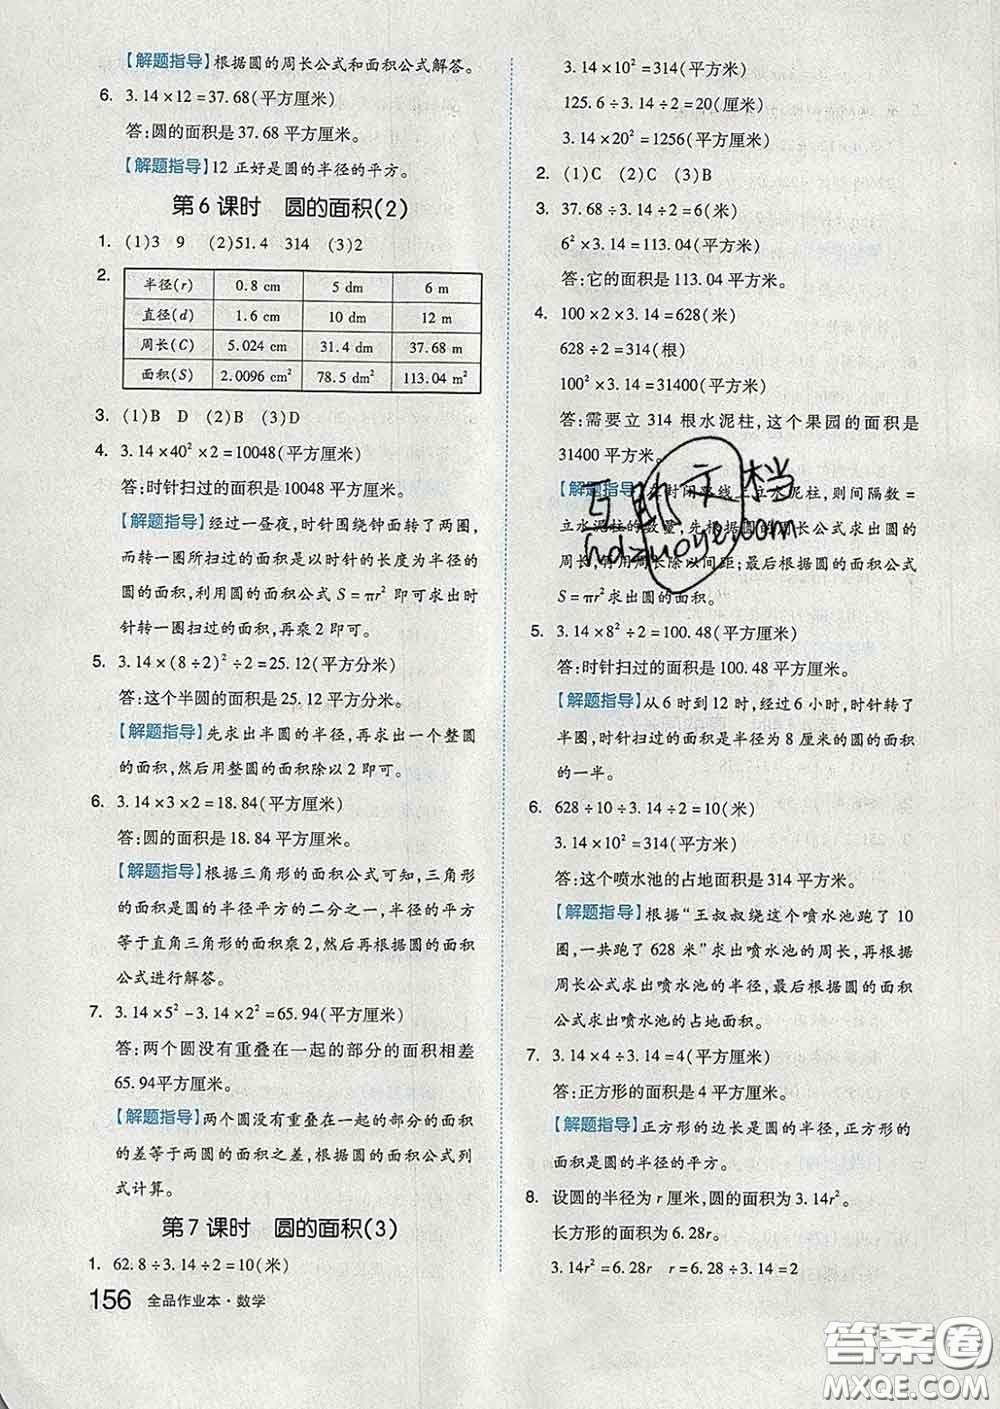 【解题指导】根据圆的周长公式和面积公式解答。
6. 3.14×12=37.68(平方厘米)
答:圆的面积是37.68平方厘米。
【解题指导】12正好是圆的半径的平方。
第6课时 圆的面积(2)
1. (1)3 9 (2)51.4 314 (3)2
2.
半径(r) 0.8 cm 5 dm 6 m
直径(d) 1.6 cm 10 dm 12 m
周长(C) 5.024 cm 31.4 dm 37.68 m
面积(S) 2.0096 cm² 78.5 dm² 113.04 m²
3. (1)B D (2)B (3)D
4. 3.14×40²×2=10048(平方厘米)
答:时针扫过的面积是10048平方厘米。
【解题指导】经过一昼夜,时针围绕钟面转了两圈,
而转一圈所扫过的面积是以时针的长度为半径的
圆的面积,利用圆的面积公式S=πr²即可求出时
针转一圈扫过的面积,再乘2即可。
5. 3.14×(8÷2)²÷2=25.12(平方分米)
答:这个半圆的面积是25.12平方分米。
【解题指导】先求出半圆的半径,再求出一个整圆
的面积,然后用整圆的面积除以2即可。
6. 3.14×3×2=18.84(平方厘米)
答:圆的面积是18.84平方厘米。
【解题指导】根据三角形的面积公式可知,三角形
的面积是圆的半径平方的二分之一,半径的平方
等于直角三角形的面积乘2,然后再根据圆的面积
公式进行解答。
7. 3.14×5²-3.14×2²=65.94(平方厘米)
答:两个圆没有重叠在一起的部分的面积相差
65.94平方厘米。
【解题指导】两个圆没有重叠在一起的部分的面积
的差等于两圆的面积之差,根据圆的面积公式列
式计算。
第7课时 圆的面积(3)
1. 62.8÷3.14÷2=10(米)
156 全品作业本·数学
3.14×10²=314(平方米)
125.6÷3.14÷2=20(厘米)
3.14×20²=1256(平方厘米)
2. (1)C (2)C (3)B
3. 37.68÷3.14÷2=6(米)
6²×3.14=113.04(平方米)
答:它的面积是113.04平方米。
4. 100×2×3.14=628(米)
628÷2=314(根)
100²×3.14=31400(平方米)
答:需要立314根水泥柱,这个果园的面积是
31400平方米。
【解题指导】在封闭 线上立水泥柱,则间隔数=
立水泥柱的数量,先根据圆的周长公式求出圆的
周长,再用周长除以间距;最后根据圆的面积公式
S=πr²求出圆的面积。
5. 3.14×8²÷2=100.48(平方厘米)
答:时针扫过的面积是100.48平方厘米。
【解题指导】从6时到12时,经过6小时,时针转了
半圈,时针扫过的面积是半径为8厘米的圆的面积
的一半。
6. 628÷10÷3.14÷2=10(米)
3.14×10²=314(平方米)
答:这个喷水池的占地面积是314平方米。
【解题指导】根据“王叔叔绕这个喷水池跑了10
圈,一共跑了628米”求出喷水池的周长,再根据
周长公式求出喷水池的半径,最后根据圆的面积
公式求出喷水池的占地面积。
7. 3.14×4÷3.14=4(平方厘米)
答:正方形的面积是4平方厘米。
【解题指导】正方形的边长是圆的半径,正方形的
面积是圆的半径的平方。
8. 设圆的半径为r厘米,圆的面积为3.14r²。
长方形的面积为6.28r。
3.14r²=6.28r r=6.28÷3.14=2
互助文档
hdzuoye.com
答案圈
MXQE.COM